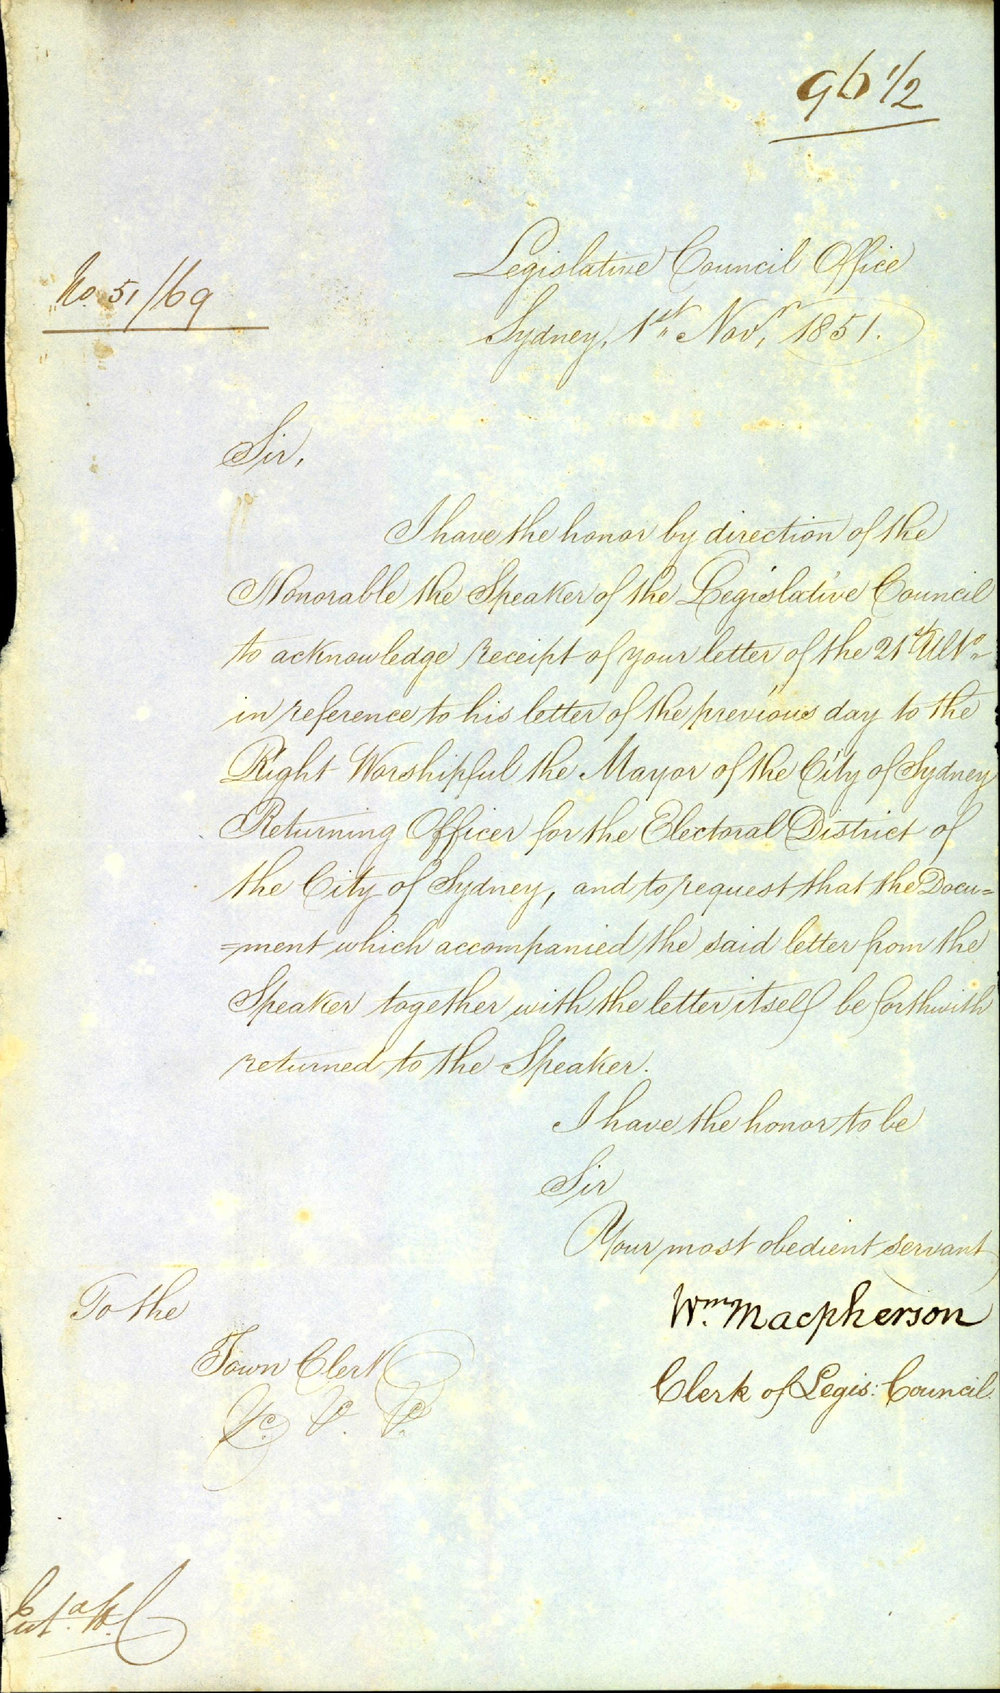 96 1/2
No. 51/69
Legislative Council Office
Sydney, 1st Novr, 1851.
Sir,
I have the honor by direction of the
Honorable the Speaker of the Legislative Council
to acknowledge receipt of your letter of the 21st Ulto.
in reference to his letter of the previous day to the
Right Worshipful the Mayor of the City of Sydney
Returning Officer for the Electoral District of
the City of Sydney, and to request that the Docu=
=ment which accompanied the said letter from the
Speaker together with the letter itself be forthwith
returned to the Speaker.
I have the honor to be
Sir
Your most obedient servant
Wm. Macpherson
Clerk of Legis: Council.
To the
Town Clerk
&c. &c. &c.